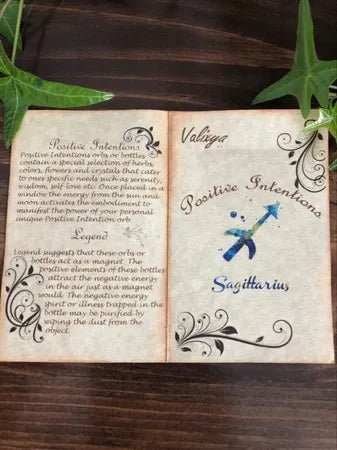 Positive Intentions
Positive Intentions orbs or bottles
contain a special selection of herbs,
colors, flowers and crystals that cater
to ones specific needs such as serenity,
wisdom, self love etc. Once placed in a
window the energy from the sun and
moon activates the embodiment to
manifest the power of your personal
unique Positive Intentions orb
Legend
Legend suggests that these orbs or
bottles act as a magnet. The
positive elements of these bottles
attract the negative energy
in the air just as a magnet
would. The negative energy
spirit or illness trapped in the
bottle may be purified by
wiping the dust from the
object.
Valixya
Positive Intentions
Sagittarius